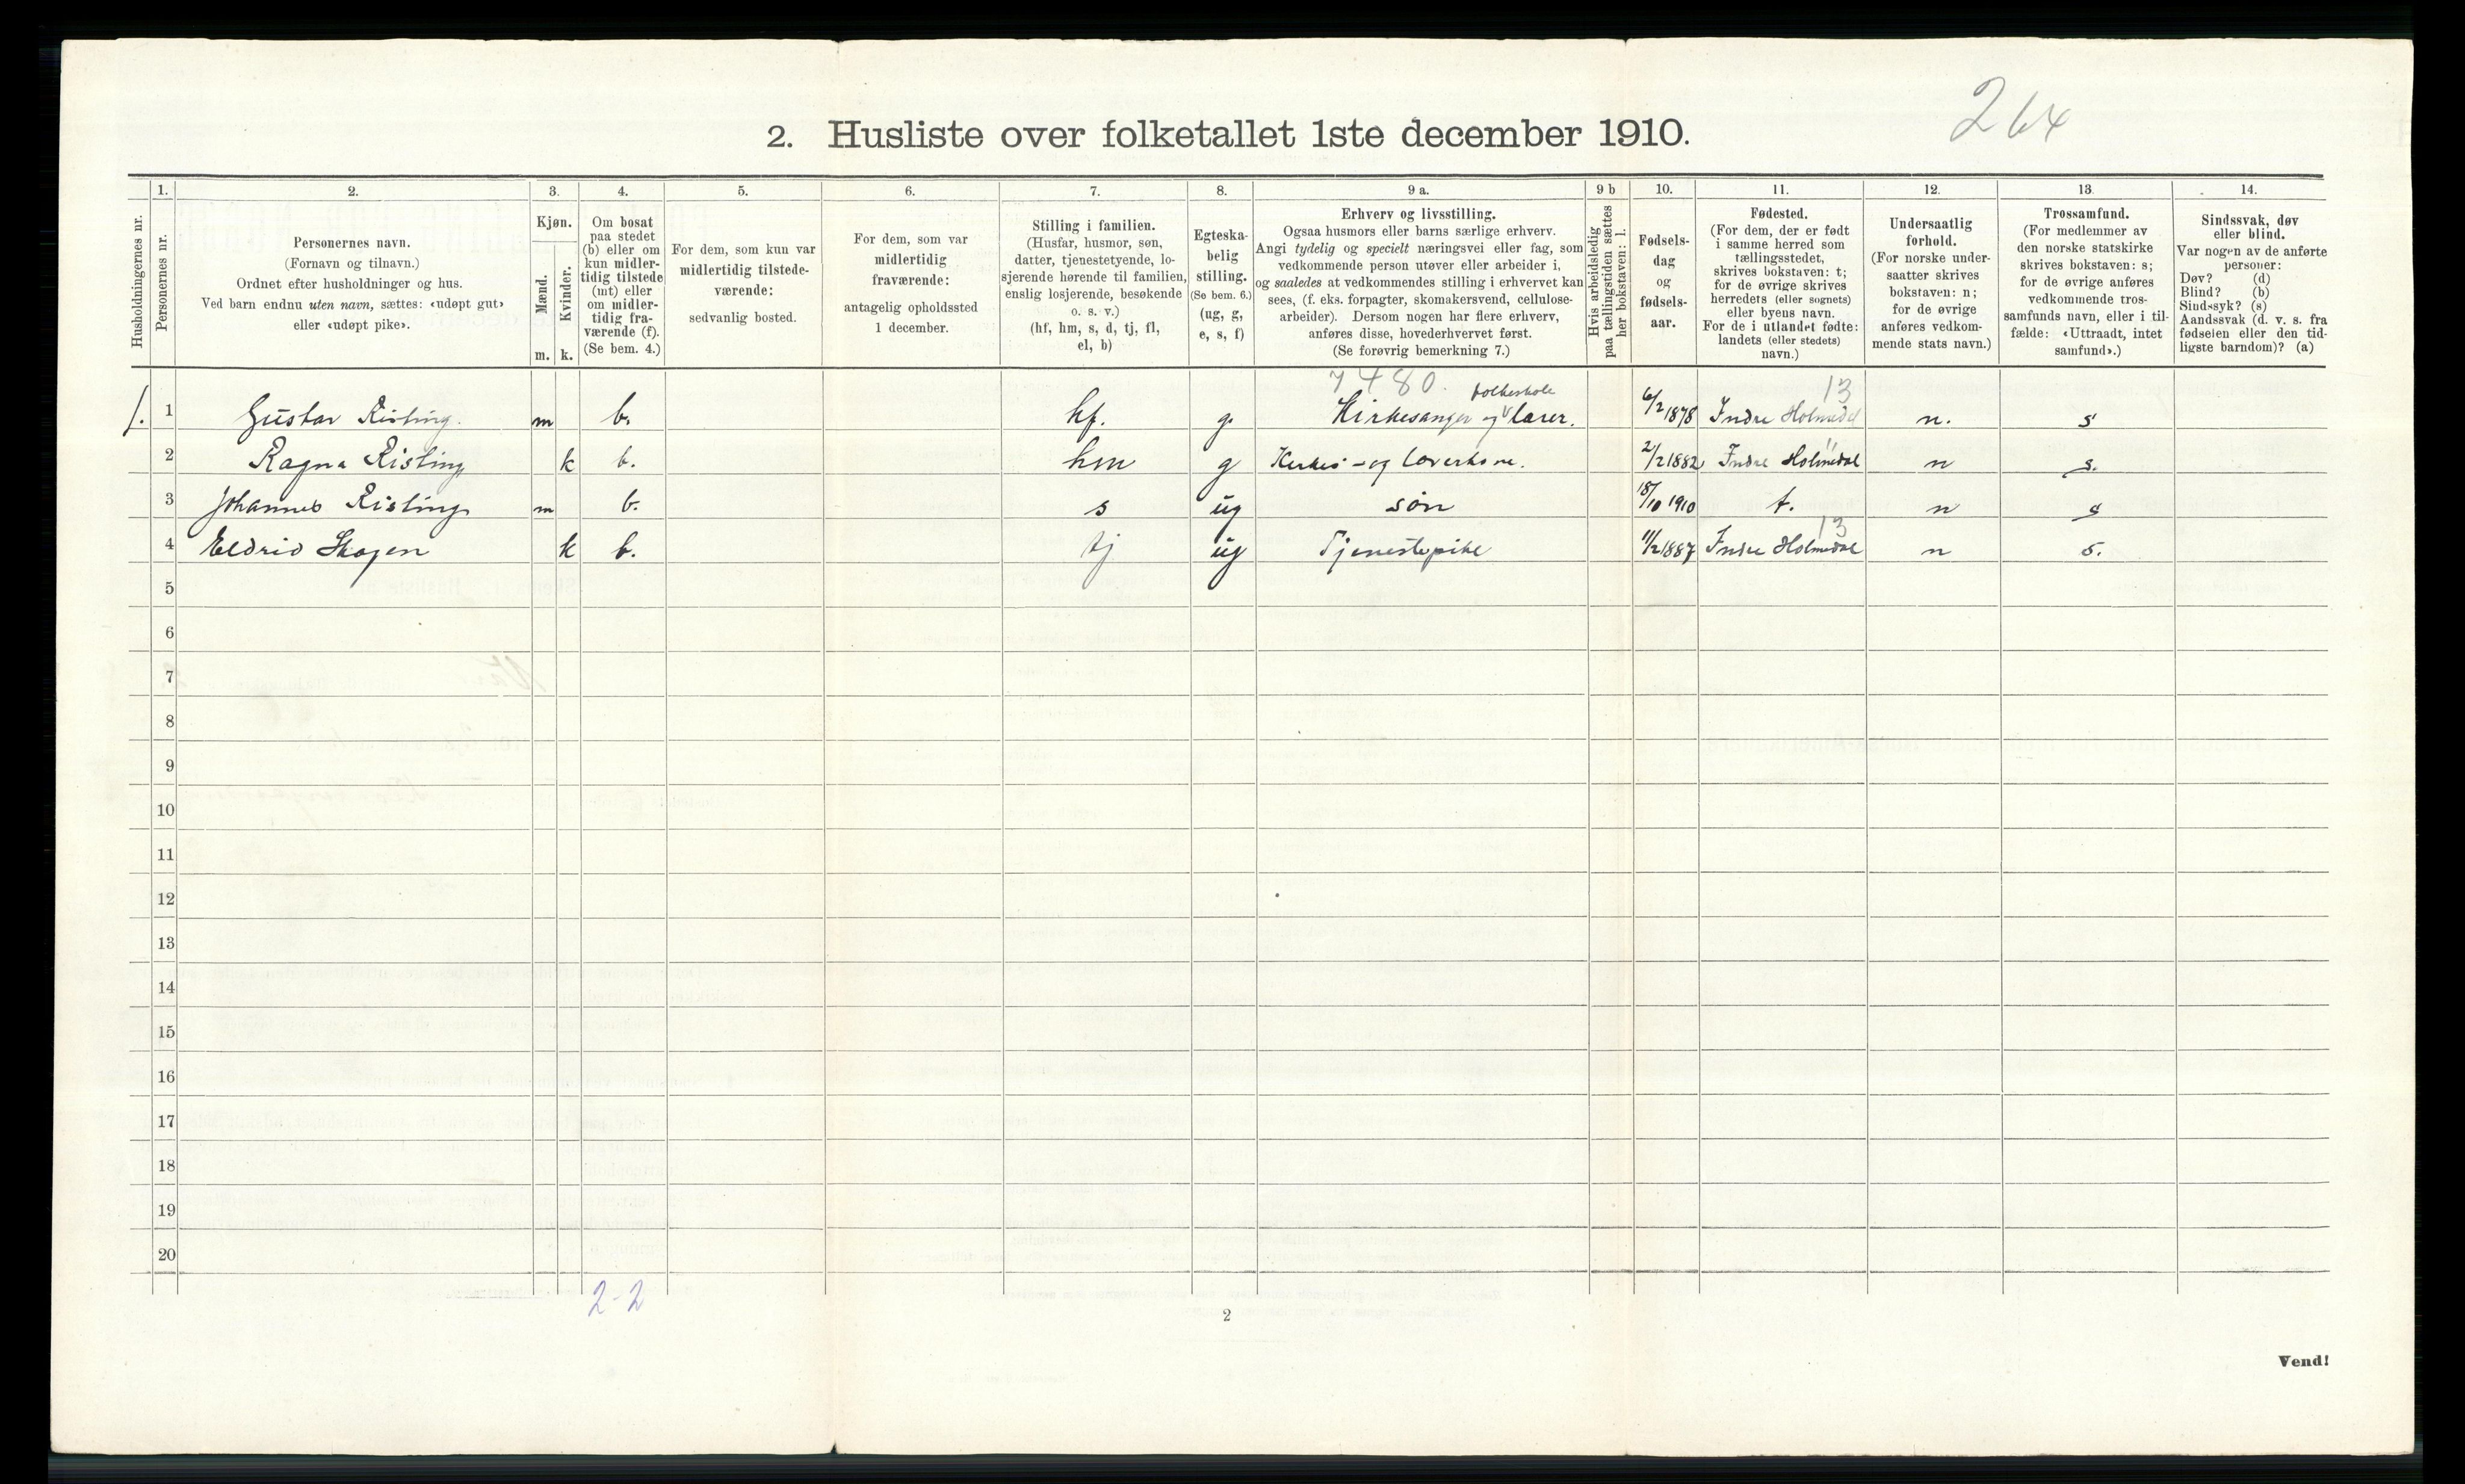 264
2. Husliste over folketallet 1ste december 1910.
Husholdningernes nr.
1.
Personernes nr.
2.
Personernes navn.
(Fornavn og tilnavn.)
Ordnet efter husholdninger og hus.
Ved barn endnu uten navn, sættes: «udøpt gut»
eller «udøpt pike».
3.
Kjøn.
Mænd.
Kvinder.
m. k.
4.
Om bosat
paa stedet
(b) eller om
kun midler-
tidig tilstede
(mt) eller
om midler-
tidig fra-
værende (f).
(Se bem. 4.)
5.
For dem, som kun var
midlertidig tilstede-
værende:
sedvanlig bosted.
6.
For dem, som var
midlertidig
fraværende:
antagelig opholdssted
1 december.
7.
Stilling i familien.
(Husfar, husmor, søn,
datter, tjenestetyende, lo-
sjerende hørende til familien,
enslig losjerende, besøkende
o. s. v.)
(hf, hm, s, d, tj, fl,
el, b)
8.
Egteska-
belig
stilling.
(Se bem. 6.)
(ug, g,
e, s, f)
9 a.
Erhverv og livsstilling.
Ogsaa husmors eller barns særlige erhverv.
Angi tydelig og specielt næringsvei eller fag, som
vedkommende person utøver eller arbeider i,
og saaledes at vedkommendes stilling i erhvervet kan
sees, (f. eks. forpagter, skomakersvend, cellulose-
arbeider). Dersom nogen har flere erhverv,
anføres disse, hovederhvervet først.
(Se forøvrig bemerkning 7.)
9 b
Hvis arbeidsledig
paa tællingstiden sættes
her bokstaven: l.
10.
Fødsels-
dag
og
fødsels-
aar.
11.
Fødested.
(For dem, der er født
i samme herred som
tællingsstedet,
skrives bokstaven: t;
for de øvrige skrives
herredets (eller sognets)
eller byens navn.
For de i utlandet fødte:
landets (eller stedets)
navn.)
12.
Undersaatlig
forhold.
(For norske under-
saatter skrives
bokstaven: n;
for de øvrige
anføres vedkom-
mende stats navn.)
13.
Trossamfund.
(For medlemmer av
den norske statskirke
skrives bokstaven: s;
for de øvrige anføres
vedkommende tros-
samfunds navn, eller i til-
fælde: «Uttraadt, intet
samfund».)
14.
Sindssvak, døv
eller blind.
Var nogen av de anførte
personer:
Døv? (d)
Blind? (b)
Sindssyk? (s)
Aandssvak (d. v. s. fra
fødselen eller den tid-
ligste barndom)? (a)
7480. folkeskole 13
1. 1 Gustav Risting. m b. hf. g. Kirkesanger og lærer. 6/2 1878 Indre Holmedal n. s
2 Ragna Risting k b. hm g Kirkes- og lærerkone. 2/2 1882 Indre Holmedal " n s.
3 Johannes Risting m b. s ug søn 18/10 1910 t. n s
4 Eldrid Skogen k b. tj ug Tjenestepike 11/2 1887 Indre Holmedal 13 n s.
5
6
7
8
9
10
11
12
13
14
15
16
17
18
19
20
2-2
2
Vend!